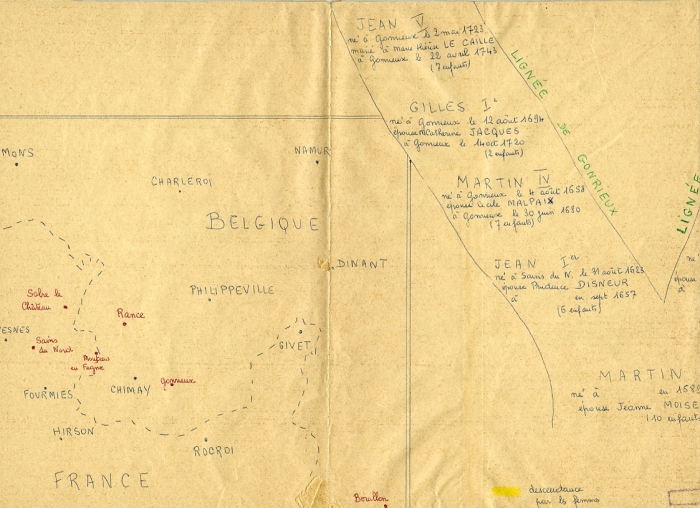 JEAN V
né à Gonrieux le 2 mai 1723
marié à Marie Thérèse LE CAILLE
à Gonrieux le 22 avril 1743
(7 enfants)
GILLES Ier
né à Gonrieux le 12 août 1694
épouse Catherine JACQUES
à Gonrieux le 14 oct 1720
(2 enfants)
MARTIN IV
né à Gonrieux le 4 août 1658
épouse Cécile MALPAIX
à Gonrieux le 30 juin 1680
(7 enfants)
JEAN Ier
né à Sains du N. le 31 août 1623
épouse Prudence DISNEUR
à en sept 1657
(6 enfants)
MARTIN
né à en 158
épouse Jeanne MOISE
(10 enfants
LIGNÉE DE GONRIEUX
LIGNÉE
né
épouse
à
MONS
NAMUR
CHARLEROI
BELGIQUE
DINANT
PHILIPPEVILLE
Solre le
Château
Rance
ESNES
Sains
du Nord
en Fagne
GIVET
FOURMIES
CHIMAY
Gonrieux
HIRSON
ROCROI
FRANCE
Bouillon
descendance
par les femmes